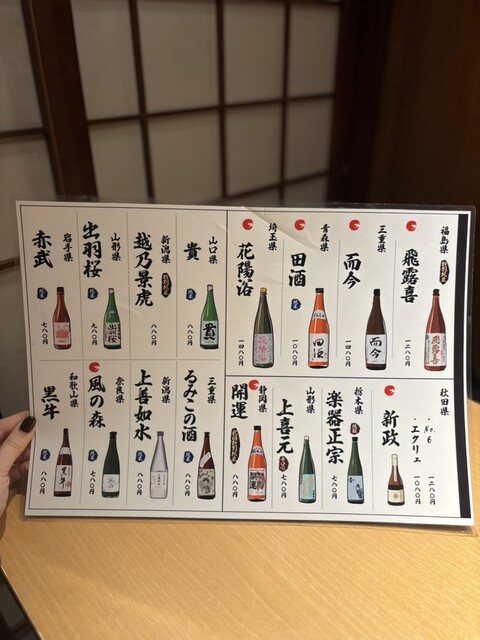 福島県
飛露喜
一二八〇円
三重県
而今
一四八〇円
青森県
田酒
一〇八〇円
埼玉県
花陽浴
一四八〇円
山口県
貴
八八〇円
新潟県
越乃景虎
八八〇円
山形県
出羽桜
九八〇円
岩手県
赤武
七八〇円
秋田県
新政
・No.6
一二八〇円
・エクリュ
一〇八〇円
栃木県
楽器正宗
七八〇円
山形県
上喜元
七八〇円
静岡県
開運
八八〇円
三重県
るみこの酒
八八〇円
新潟県
上善如水
八八〇円
奈良県
風の森
七八〇円
和歌山県
黒牛
八八〇円